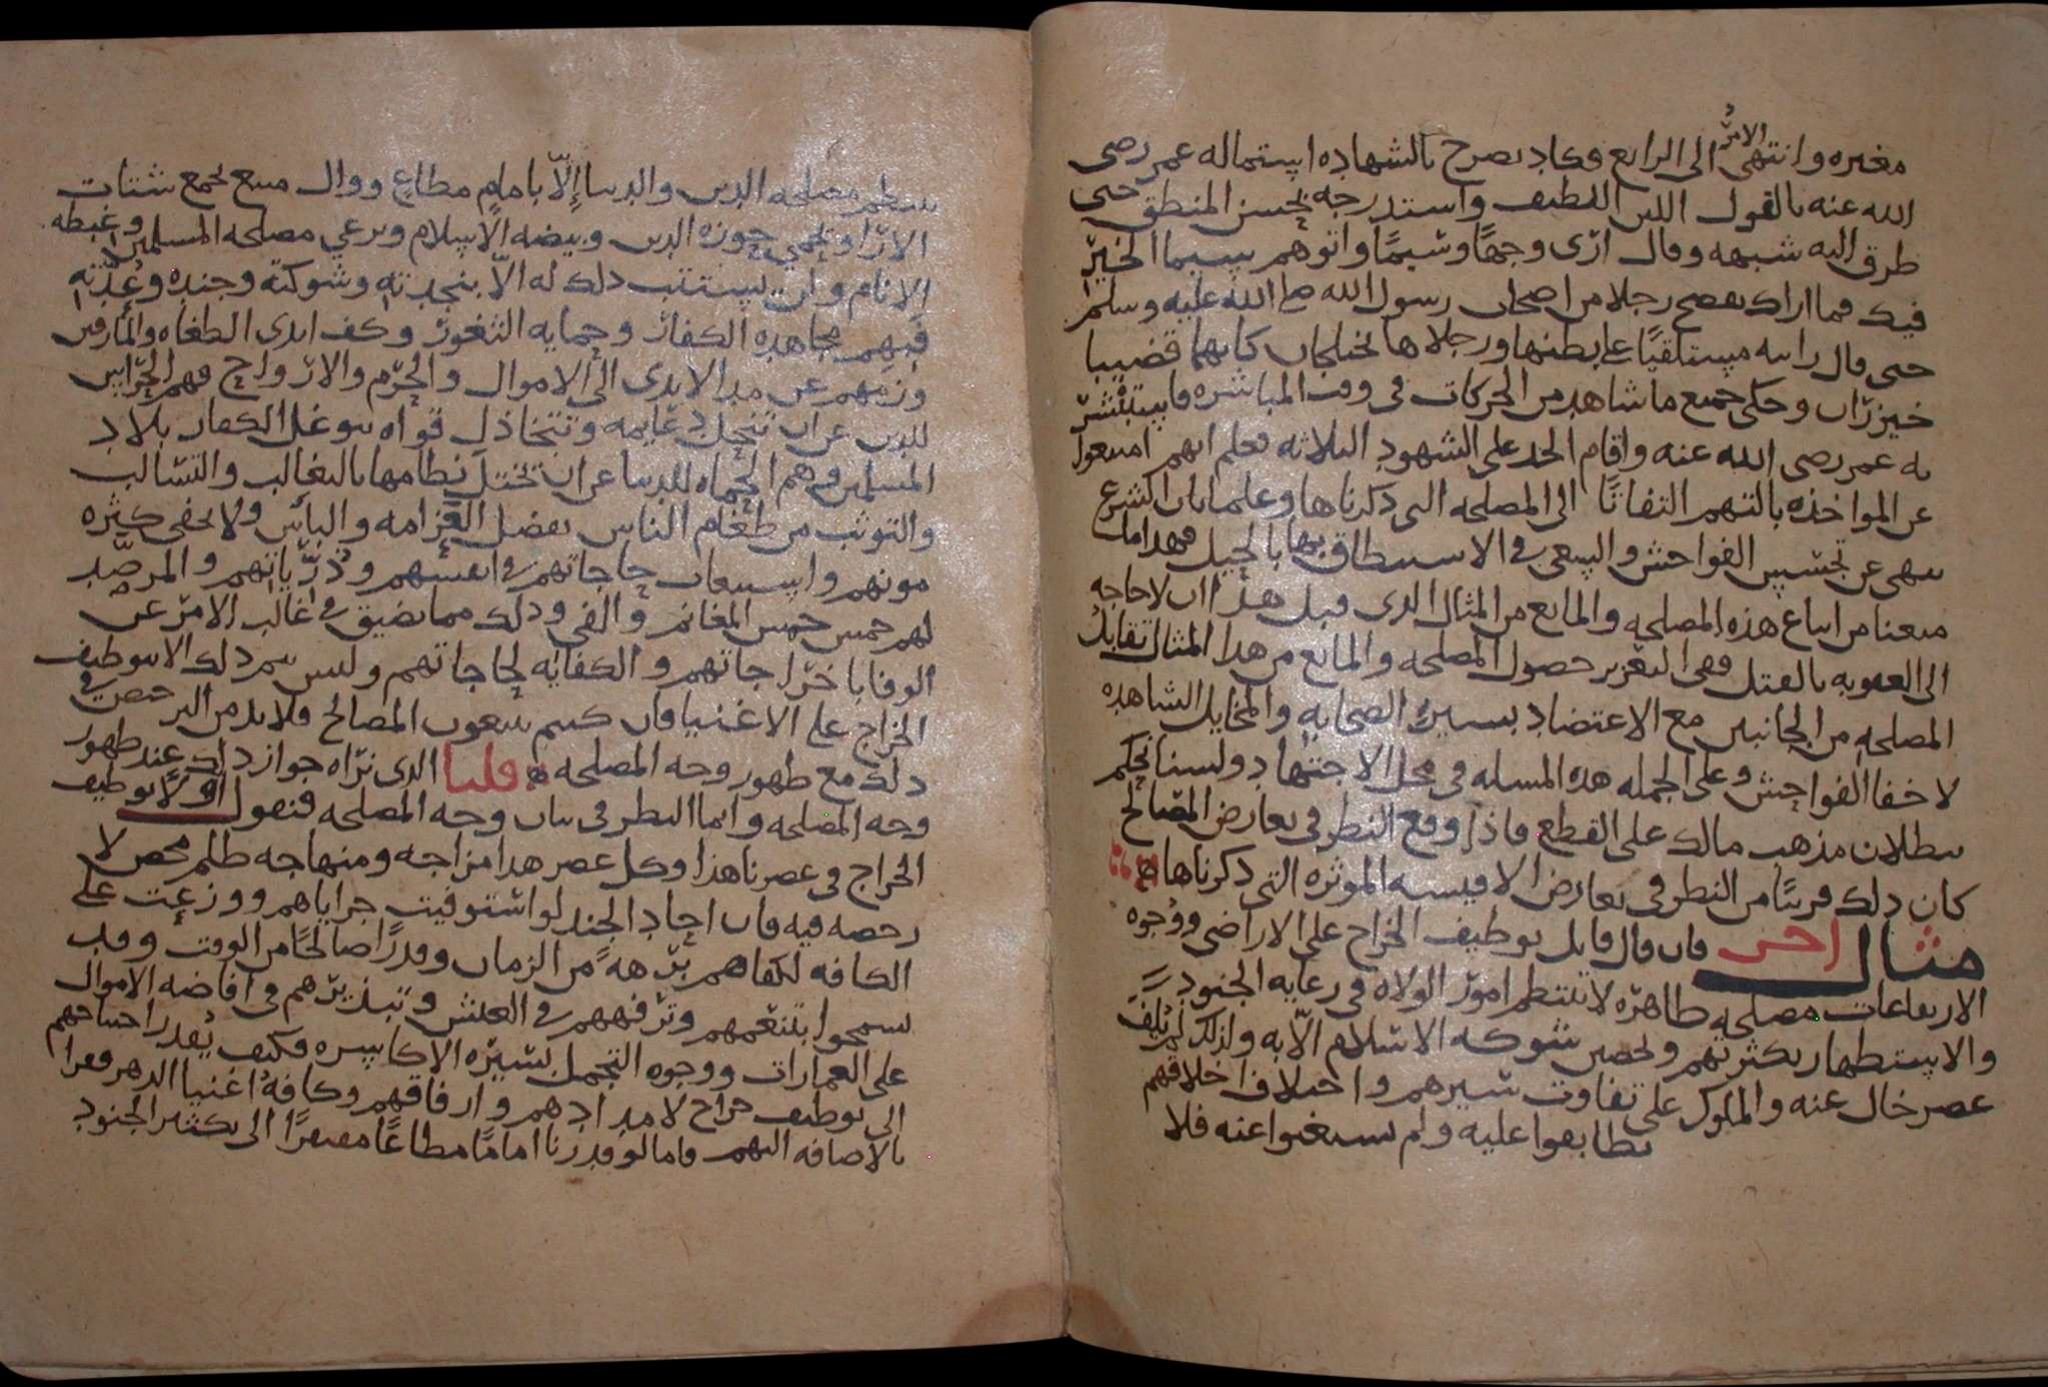 مغيره وانتهى الامر الى الرابع وكاد يصرح بالشهاده استماله عمر رضى
الله عنه بالقول اللين اللطيف واستدرجه بحسن المنطق حتى
طرق اليه شبهه وقال ارى وجهًا وسيمًا واتوهم سيما الخير
فيك فما اراك تفضح رجلا من اصحاب رسول الله صلى الله عليه وسلم
حتى قال رايته مستلقيًا على بطنها ورجلاها تختلجان كانهما قضيبا
خيزران وحكى جميع ما شاهد من الحركات فى وقت المباشره فاستبشر
به عمر رضى الله عنه واقام الحد على الشهود الثلاثه فعلم انهم امتنعوا
عن المواخذه بالتهم التفاتًا الى المصلحه التى ذكرناها وعلمنا بان الشرع
نهى عن تجسيس الفواحش والسعى فى الاستنطاق بها بالحيل فهذا ما
منعنا من اتباع هذه المصلحه والمانع من المثال الذى قبل هذا ان لا حاجه
الى العقوبه بالقتل ففى التعزير حصول المصلحه والمانع من هذا المثال تقابل
المصلحه من الجانبين مع الاعتضاد بسير الصحابه والمخايل الشاهده
لاخفا الفواحش وعلى الجمله هذه المسله فى محل الاجتهاد ولسنا نحكم
ببطلان مذهب مالك على القطع فاذا وقع النظر فى تعارض المصالح
كان ذلك قريبًا من النظر فى تعارض الاقيسه الموثره التى ذكرناها
مثال اخر فان قال قايل توظيف الخراج على الاراضى ووجوه
الارتفاعات مصلحه ظاهره لا تنتظم امور الولاه فى رعايه الجنود
والاستظهار بكثرتهم وتحصين شوكه الاسلام الّا به ولذلك لم يُلف
عصر خال عنه والملوك على تفاوت سيرهم واختلاف اخلاقهم
تطابقوا عليه ولم يستغنوا عنه فلا
تنتظم مصلحه الدين والدنيا إلّا بامام مطاع ووال متبع يجمع شتات
الارا ويحمي حوزه الدين وبيضه الاسلام ويرعي مصلحه المسلمين وغبطه
الانام ولن يستتب ذلك له الّا بنجدته وشوكته وجنده وعُدّته
فبهم مجاهده الكفار وحمايه الثغور وكف ايدى الطغاه والمارقين
وزمهم عن مد الايدى الى الاموال والحرم والازواج فهم الحراس
للدين عن ان تنحل دعايمه وتتخاذل قواه بتوغل الكفار بلاد
المسلمين وهم الحماه للدنيا عن ان يختل نظامها بالتغالب والتسالب
والتوثب من طغام الناس بفضل العرامه والباس ولا يخفى كثره
مونهم واستيعاب حاجاتهم فى انفسهم وذرياتهم والمرصد
لهم خمس خمس المغانم والفى وذلك مما يضيق فى غالب الامر عن
الوفا باخراجاتهم والكفايه لحاجاتهم وليس يتم ذلك الا بتوظيف
الخراج على الاغنيا فان كنتم تتبعون المصالح فلا بد من الترخص فى
ذلك مع ظهور وجه المصلحه قلنا الذى نراه جواز ذلك عند ظهور
وجه المصلحه وانما النظر فى بيان وجه المصلحه فنقول اولًا توظيف
الخراج فى عصرنا هذا وكل عصر هذا مزاجه ومنهاجه ظلم محض لا
رخصه فيه فان احاد الجند لو استوفيت جراياهم ووزعت على
الكافه لكفاهم برههً من الزمان وقدرًا صالحًا من الوقت وقد
تشمحوا بتنعمهم وترفههم فى العيش وتبذيرهم فى افاضه الاموال
على العمارات ووجوه التجمل بسيره الاكاسره فكيف يُقدر احتياجهم
الى توظيف خراج لامدادهم وارفاقهم وكافه اغنيا الدهر فقرا
بالاضافه اليهم فاما لو قدرنا امامًا مطاعًا مفتقرًا الى تكثير الجنود